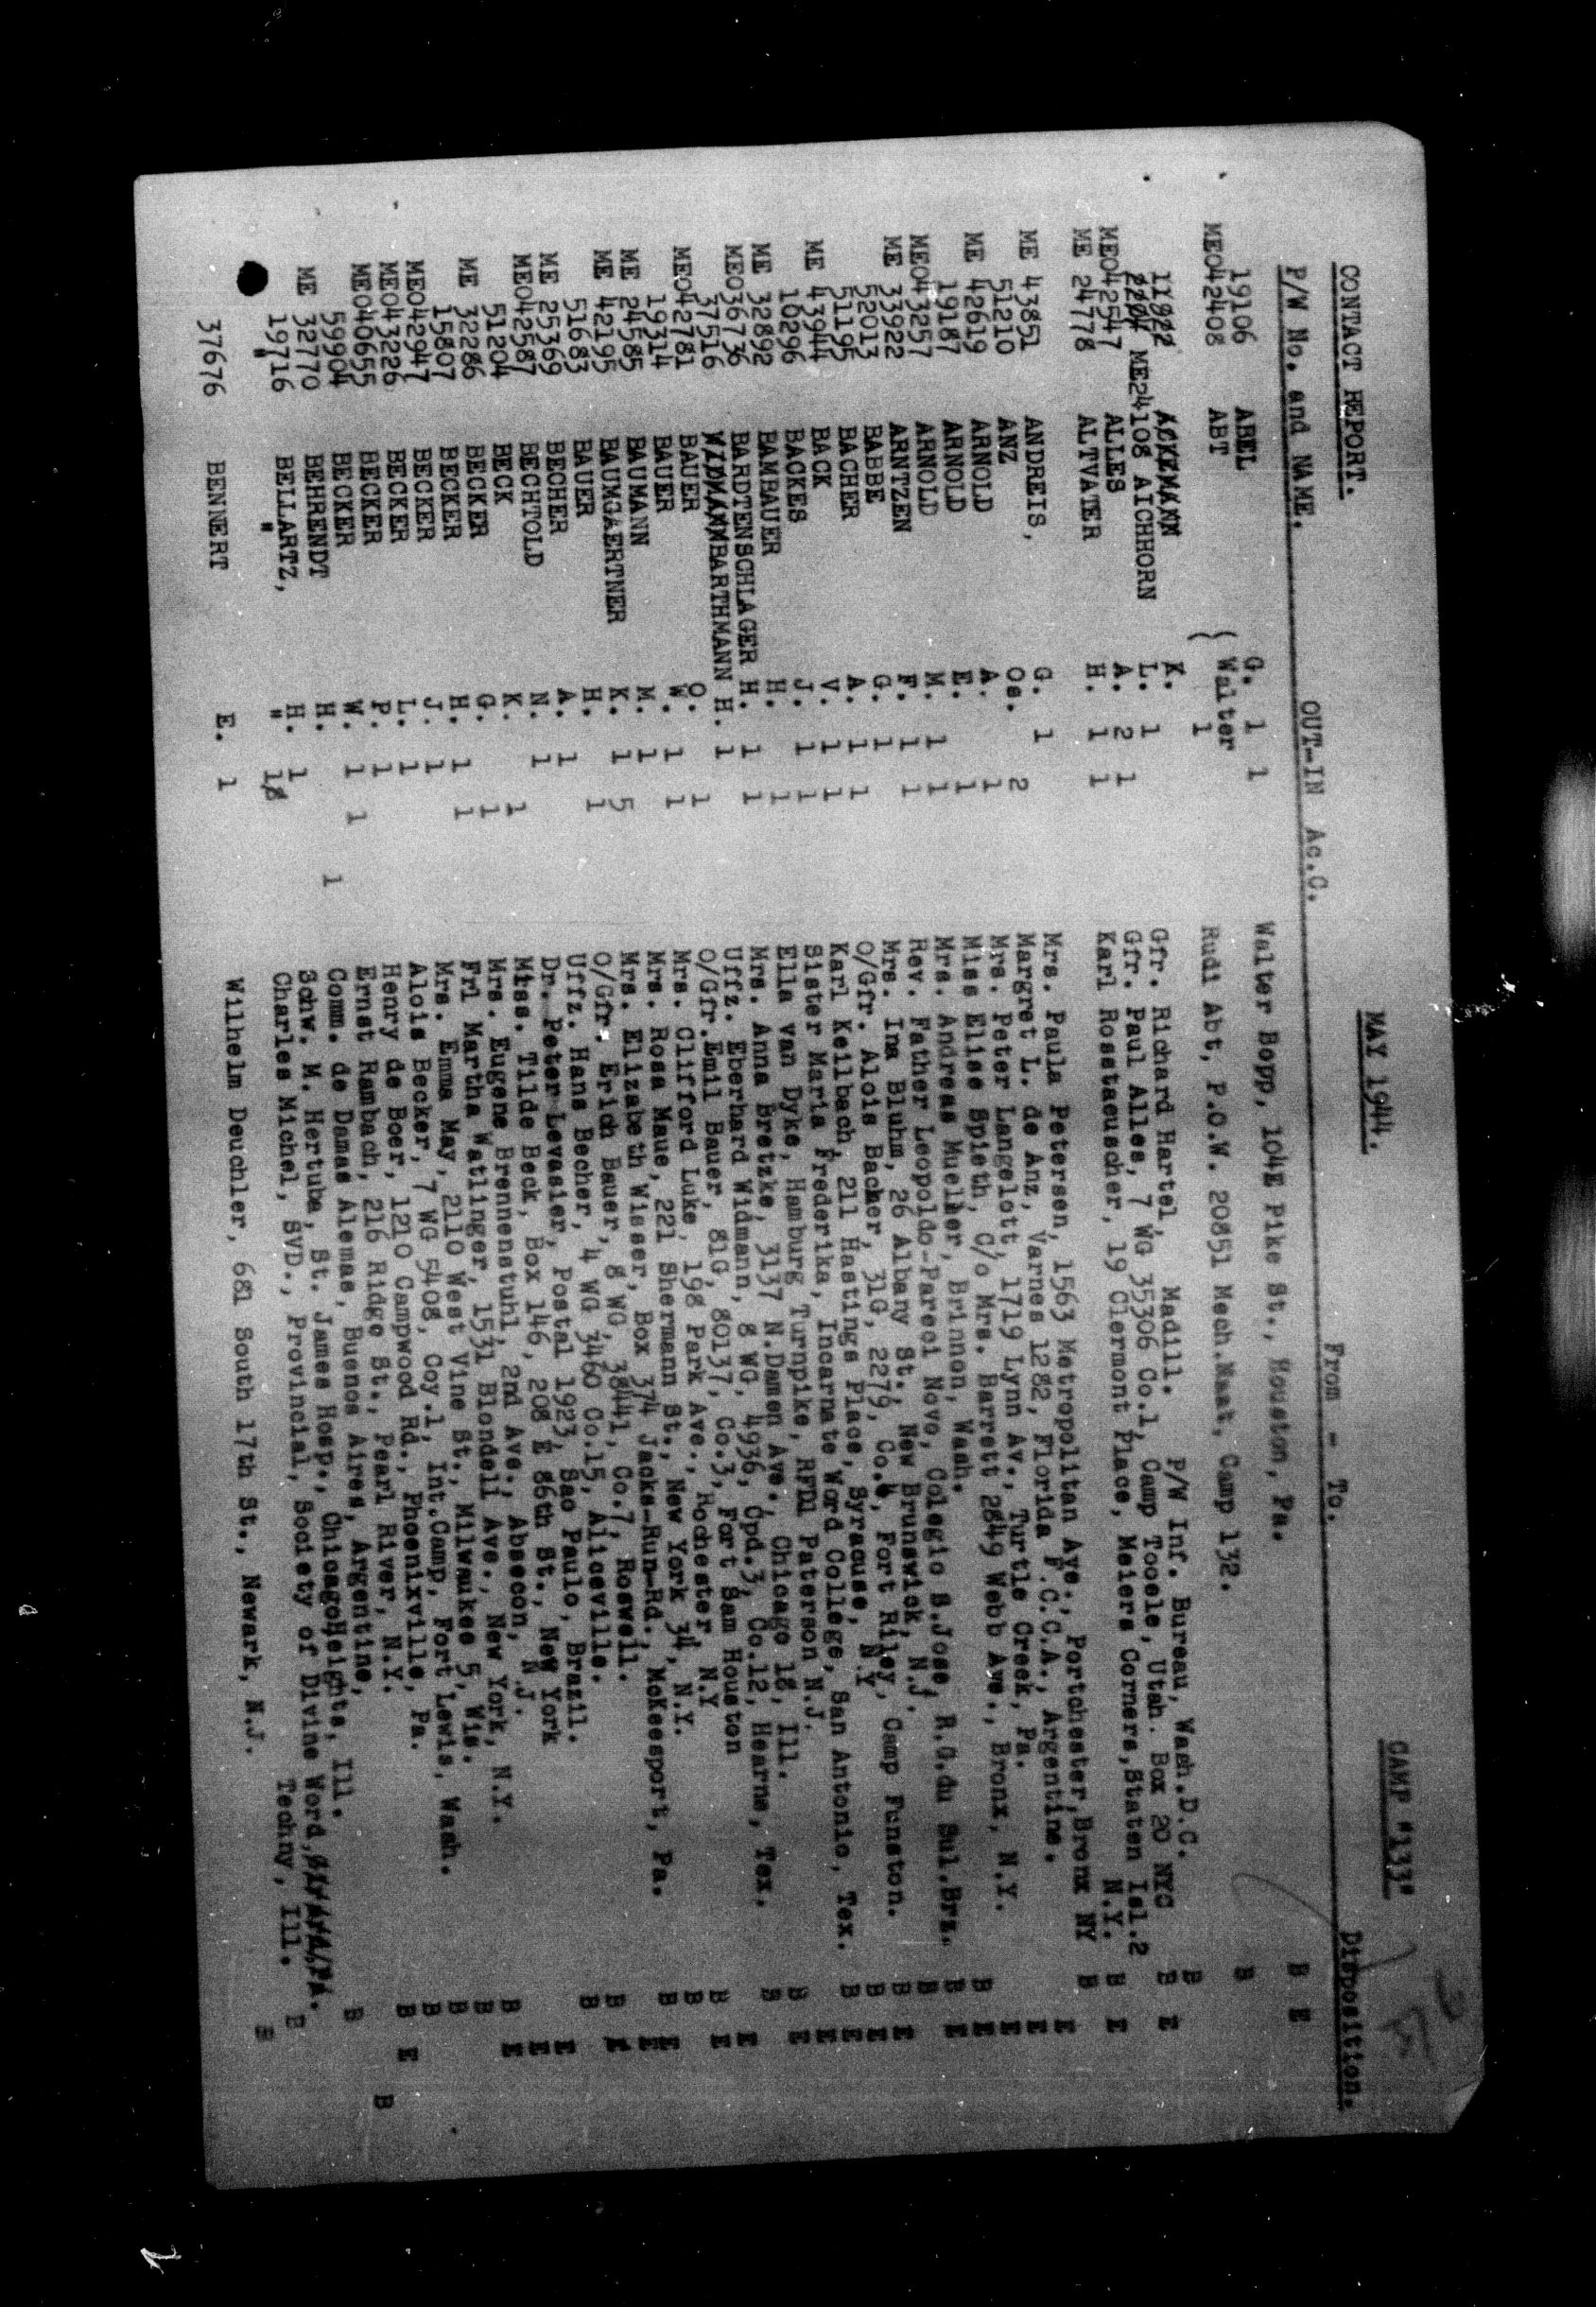 CONTACT REPORT. MAY 1944. CAMP "133"
P/W No. and NAME. OUT-IN Ac.C. From - To. Disposition.
19106 ABEL G. 1 1 Walter Bopp, 104E Pike St., Houston, Pa. B E
ME042408 ABT { Walter 1 Rudi Abt, P.O.W. 20851 Mech.Naat, Camp 132. B
11922 ACKEMANN K.
2204 ME24108 AICHHORN L. 1 Gfr. Richard Hartel, Madill. P/W Inf. Bureau, Wash.D.C. B
ME042547 ALLES A. 2 1 Gfr. Paul Alles, 7 WG 35306 Co.1, Camp Tooele, Utah. Box 20 NYC B E
ME 24778 ALTVATER H. 1 1 Karl Rosstaeuscher, 19 Clermont Place, Meiers Corners,Staten Isl.2 N.Y. B E
ME 43851 ANDREIS, G. 1 Mrs. Paula Petersen, 1563 Metropolitan Ave., Portchester,Bronx NY B
51210 ANZ Os. 2 Margret L. de Anz, Varnes 1282, Florida F.C.C.A., Argentine. E
ME 42619 ARNOLD A. 1 Mrs. Peter Langelott, 1719 Lynn Av., Turtle Creek, Pa. E
19187 ARNOLD E. 1 Miss Elise Spieth, C/o Mrs. Barrett 2849 Webb Ave., Bronx, N.Y. E
ME043257 ARNOLD M. 1 1 Mrs. Andreas Mueller, Brinnon, Wash. B E
ME 33922 ARNTZEN F. 1 1 Rev. Father Leopoldo-Pareci Novo, Colegio S.Jose, R.G.du Sul.Brz. B E
52013 BABBE G. 1 Mrs. Ina Bluhm, 26 Albany St., New Brunswick, N.J. B
51195 BACHER A. 1 1 O/Gfr. Alois Bacher, 31G, 2279, Co.4, Fort Riley, Camp Funston. B E
ME 43944 BACK V. 1 1 Karl Keilbach, 211 Hastings Place, Syracuse, N.Y B E
10296 BACKES J. 1 1 Sister Maria Frederika, Incarnate Word College, San Antonio, Tex. B E
ME 32892 BAMBAUER H. 1 Ella van Dyke, Hamburg Turnpike, RFD1 Paterson N.J. E
ME036736 BARDTENSCHLAGER H. 1 1 Mrs. Anna Bretzke, 3137 N.Damen Ave., Chicago 18, Ill. B E
37516 WIDMANN BARTHMANN H. 1 Uffz. Eberhard Widmann, 8 WG, 4936, Cpd.3, Co.12, Hearne, Tex. B
ME042781 BAUER O. 1 O/Gfr.Emil Bauer, 81G, 80137, Co.3, Fort Sam Houston E
19314 BAUER W. 1 1 Mrs. Clifford Luke, 198 Park Ave., Rochester, N.Y B E
ME 24585 BAUMANN M. 1 Mrs. Rosa Maue, 221 Shermann St., New York 34, N.Y. B
ME 42195 BAUMGAERTNER K. 1 5 Mrs. Elizabeth Wisser, Box 374 Jacks-Run-Rd., McKeesport, Pa. B E
51683 BAUER H. 1 O/Gfr. Erich Bauer, 8 WG, 38441, Co.7, Roswell. E
ME 25369 BECHER A. 1 Uffz. Hans Becher, 4 WG 3460 Co.15, Aliceville. B
ME042587 BECHTOLD N. 1 Dr. Peter Levasier, Postal 1923, Sao Paulo, Brazil. B
51204 BECK K. 1 Miss. Tilde Beck, Box 146, 208 E 86th St., New York E
ME 32286 BECKER G. 1 Mrs. Eugene Brennenstuhl, 2nd Ave., Absecon, N.J. E
15807 BECKER H. 1 1 Frl Martha Watlinger, 1531 Blondell Ave., New York, N.Y. B E
ME042947 BECKER J. 1 Mrs. Emma May, 2110 West Vine St., Milwaukee 5, Wis. B
ME043226 BECKER L. 1 Alois Becker, 7 WG 5408, Coy.1, Int.Camp, Fort Lewis, Wash. B
ME040655 BECKER P. 1 Henry de Boer, 1210 Campwood Rd., Phoenixville, Pa. B
59904 BECKER W. 1 1 Ernst Rambach, 216 Ridge St., Pearl River, N.Y. B E
ME 32770 BEHRENDT H. 1 Comm. de Damas Alemas, Buenos Aires, Argentine, B
19716 BELLARTZ, H. 1 Schw. M. Hertuba, St. James Hosp., ChicagoHeights, Ill. B
" " " 1 Charles Michel, SVD., Provincial, Society of Divine Word, Techny, Ill. B
37676 BENNERT E. 1 Wilhelm Deuchler, 681 South 17th St., Newark, N.J. B